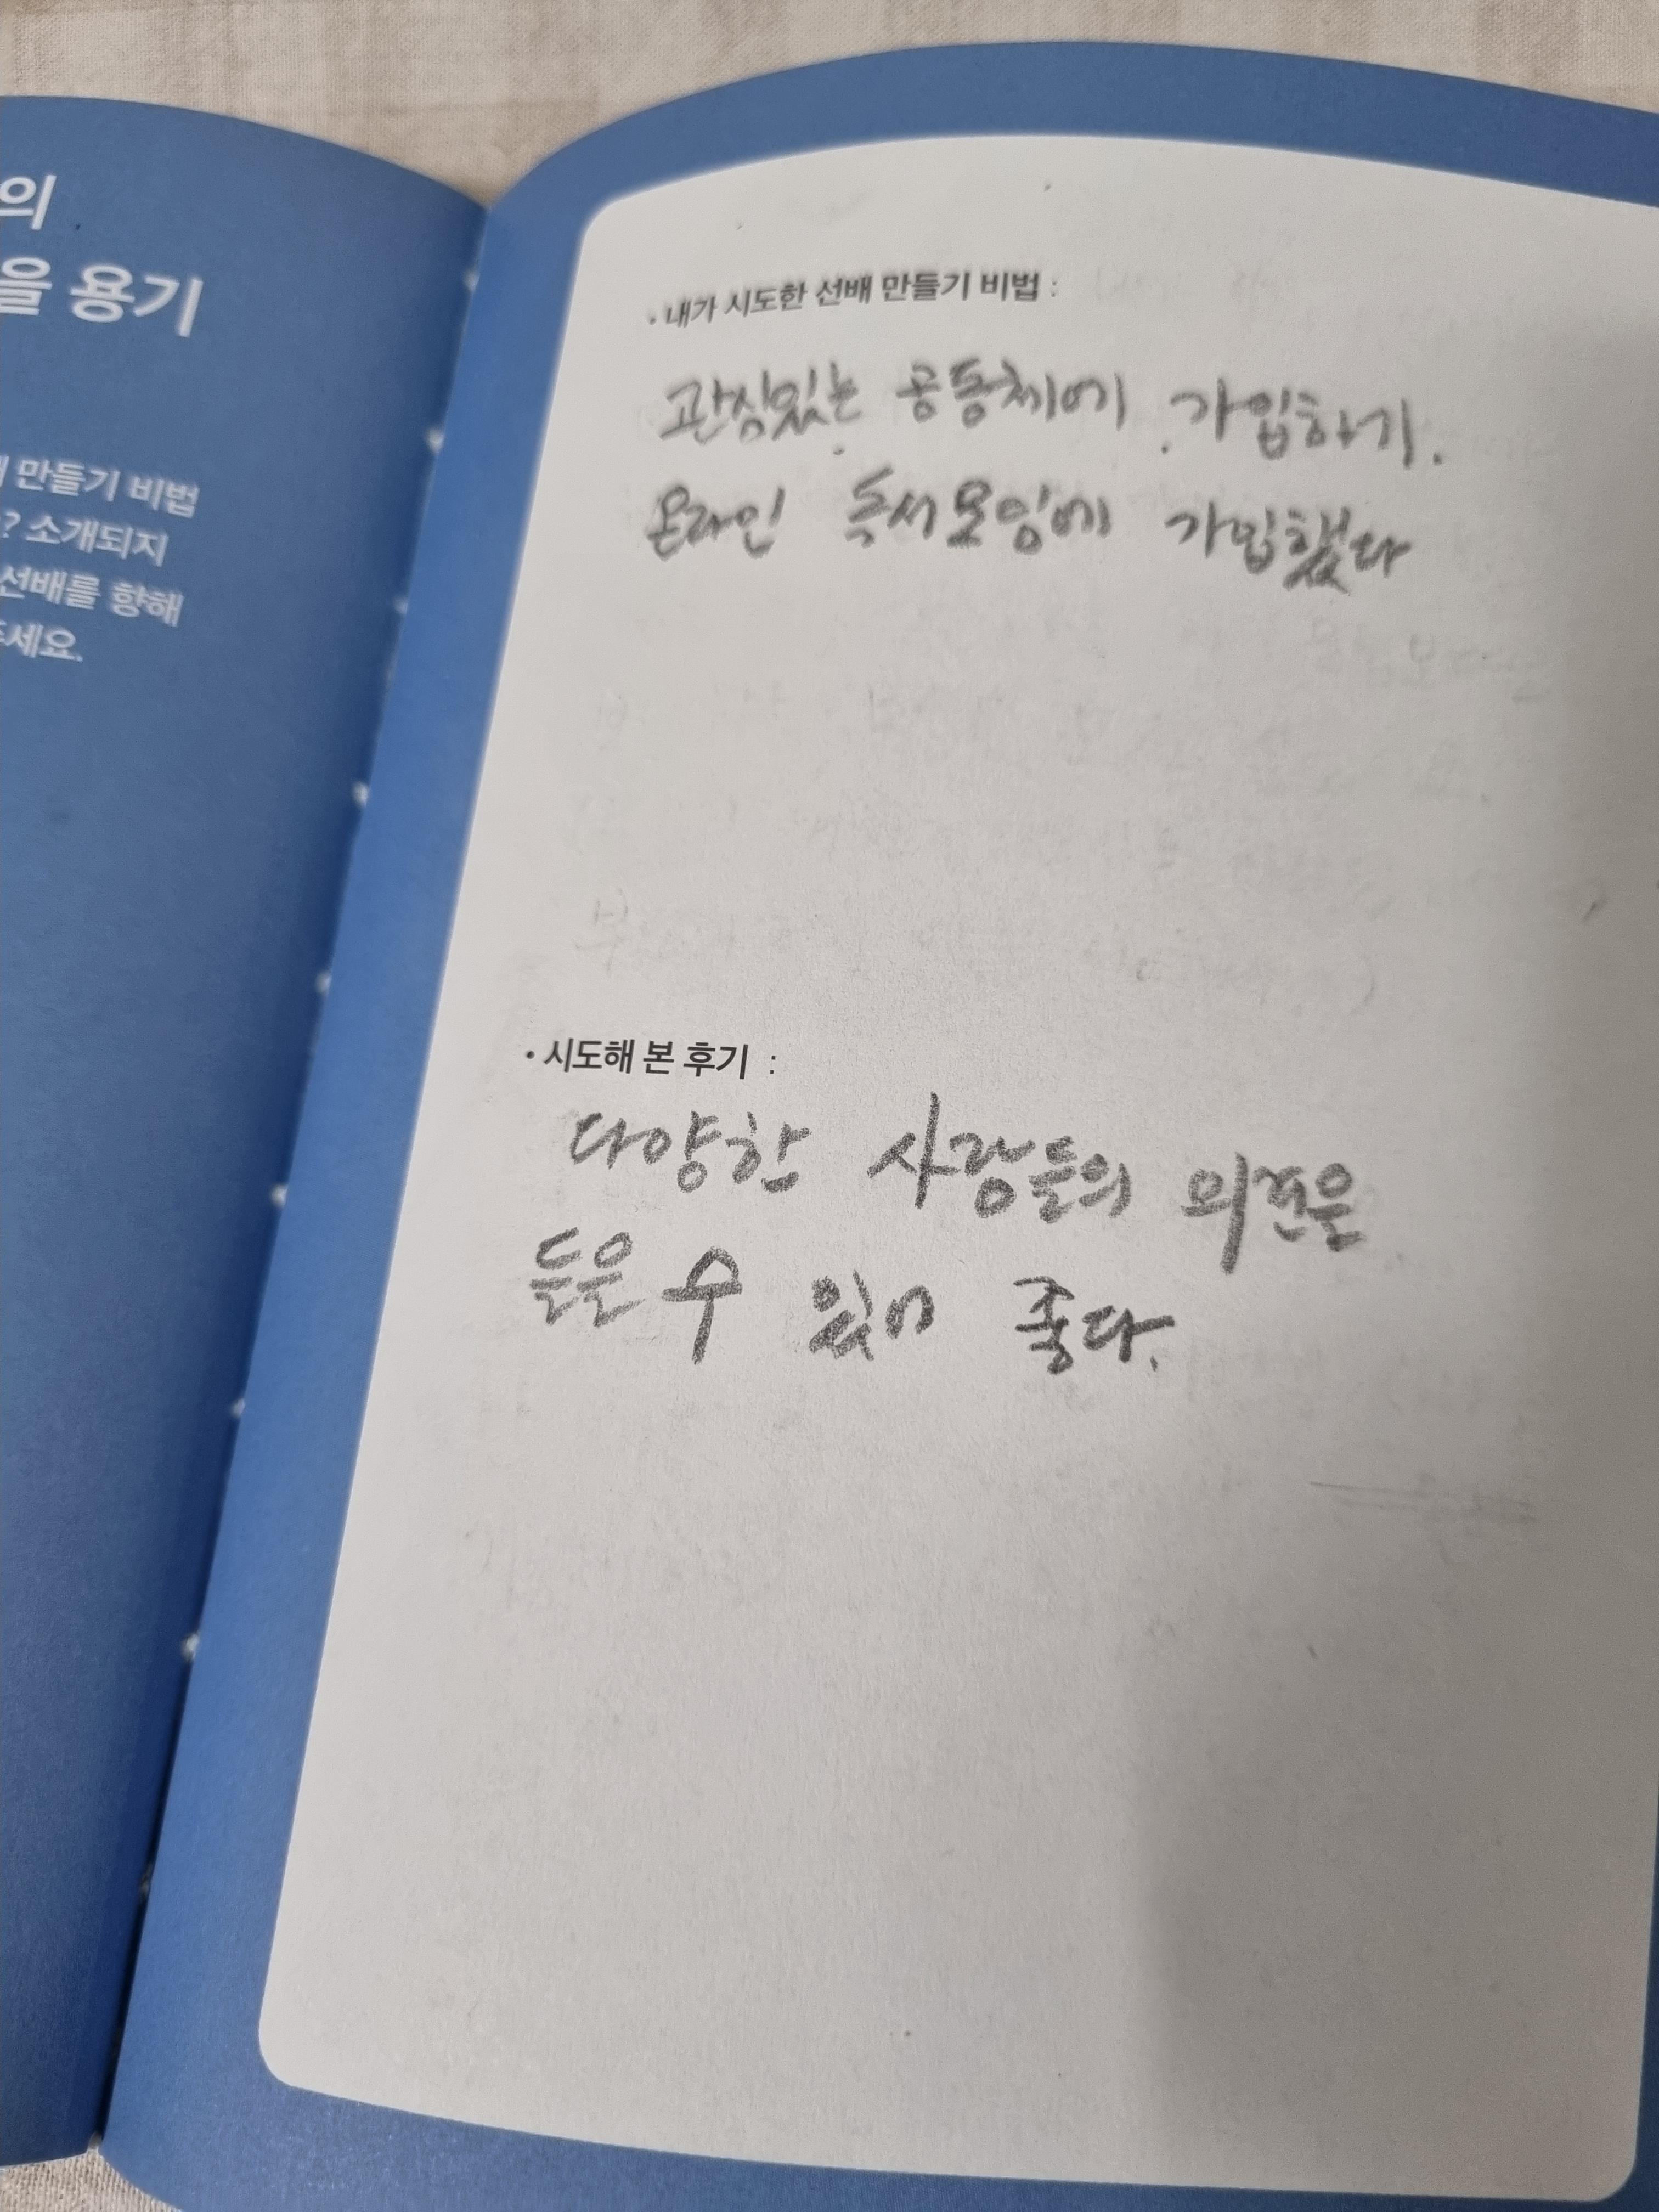 의
을 용기
만들기 비법
? 소개되지
선배를 향해
세요.
• 내가 시도한 선배 만들기 비법 :
관심있는 공동체에 가입하기.
온라인 독서모임에 가입했다
• 시도해 본 후기 :
다양한 사람들의 의견을
들을 수 있어 좋다.